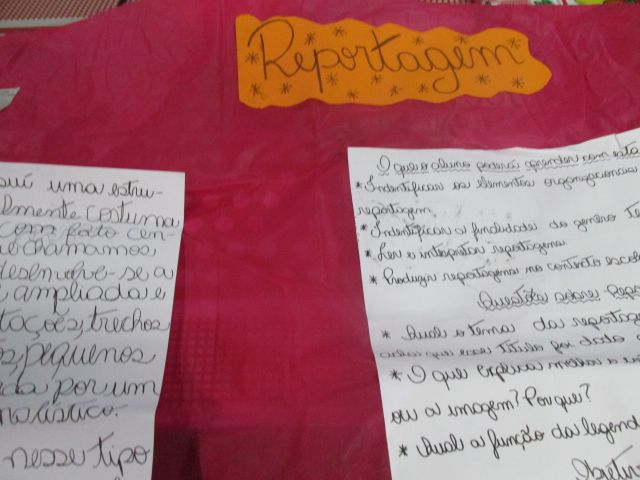 Reportagem
suí uma estru-
lmente costuma
com fato cen-
chamamos
desenvolve-se a
ampliada e
tações, trechos
pequenos
da por um
nalístico.
nesse tipo
O que o aluno poderá aprender com esta
* Indentificar os elementos organizacionais
reportagem
* Indentificar a finalidade do gênero
* Ler e interpretar reportagens
* Produzir reportagens no contexto escola
Questões sobre: Repo
* Qual o tema da reportage
esse título foi dado
* O que explica melhor a
ou a imagem? Por que?
* Qual a função da legend
Objetiv